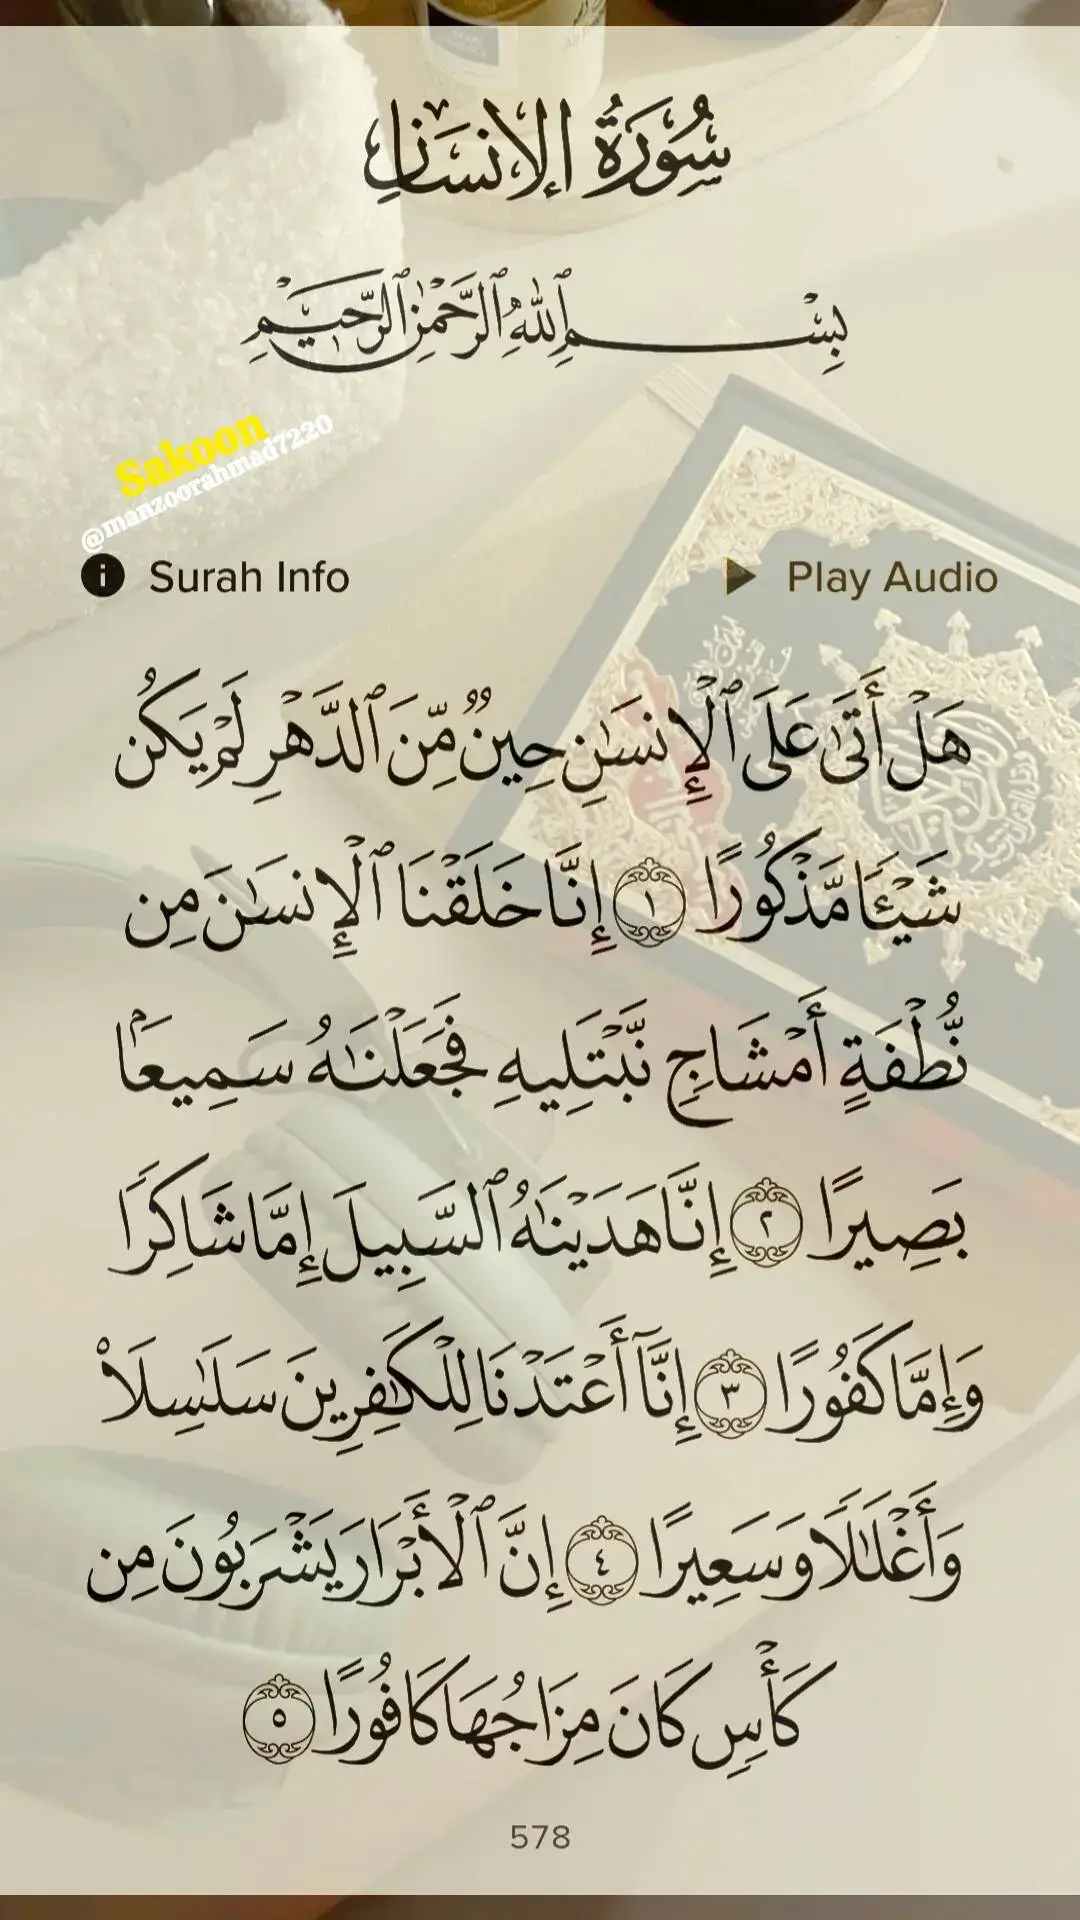 سُورَةُ الإِنسَانِ
بِسْمِ ٱللَّهِ ٱلرَّحْمَٰنِ ٱلرَّحِيمِ
Sakoon
@manzoorahmad7220
Surah Info
Play Audio
هَلْ أَتَىٰ عَلَى ٱلْإِنسَٰنِ حِينٌ مِّنَ ٱلدَّهْرِ لَمْ يَكُن
شَيْـًٔا مَّذْكُورًا ١ إِنَّا خَلَقْنَا ٱلْإِنسَٰنَ مِن
نُّطْفَةٍ أَمْشَاجٍ نَّبْتَلِيهِ فَجَعَلْنَٰهُ سَمِيعًۢا
بَصِيرًا ٢ إِنَّا هَدَيْنَٰهُ ٱلسَّبِيلَ إِمَّا شَاكِرًا
وَإِمَّا كَفُورًا ٣ إِنَّآ أَعْتَدْنَا لِلْكَٰفِرِينَ سَلَٰسِلَا۟
وَأَغْلَٰلًا وَسَعِيرًا ٤ إِنَّ ٱلْأَبْرَارَ يَشْرَبُونَ مِن
كَأْسٍ كَانَ مِزَاجُهَا كَافُورًا ٥
578